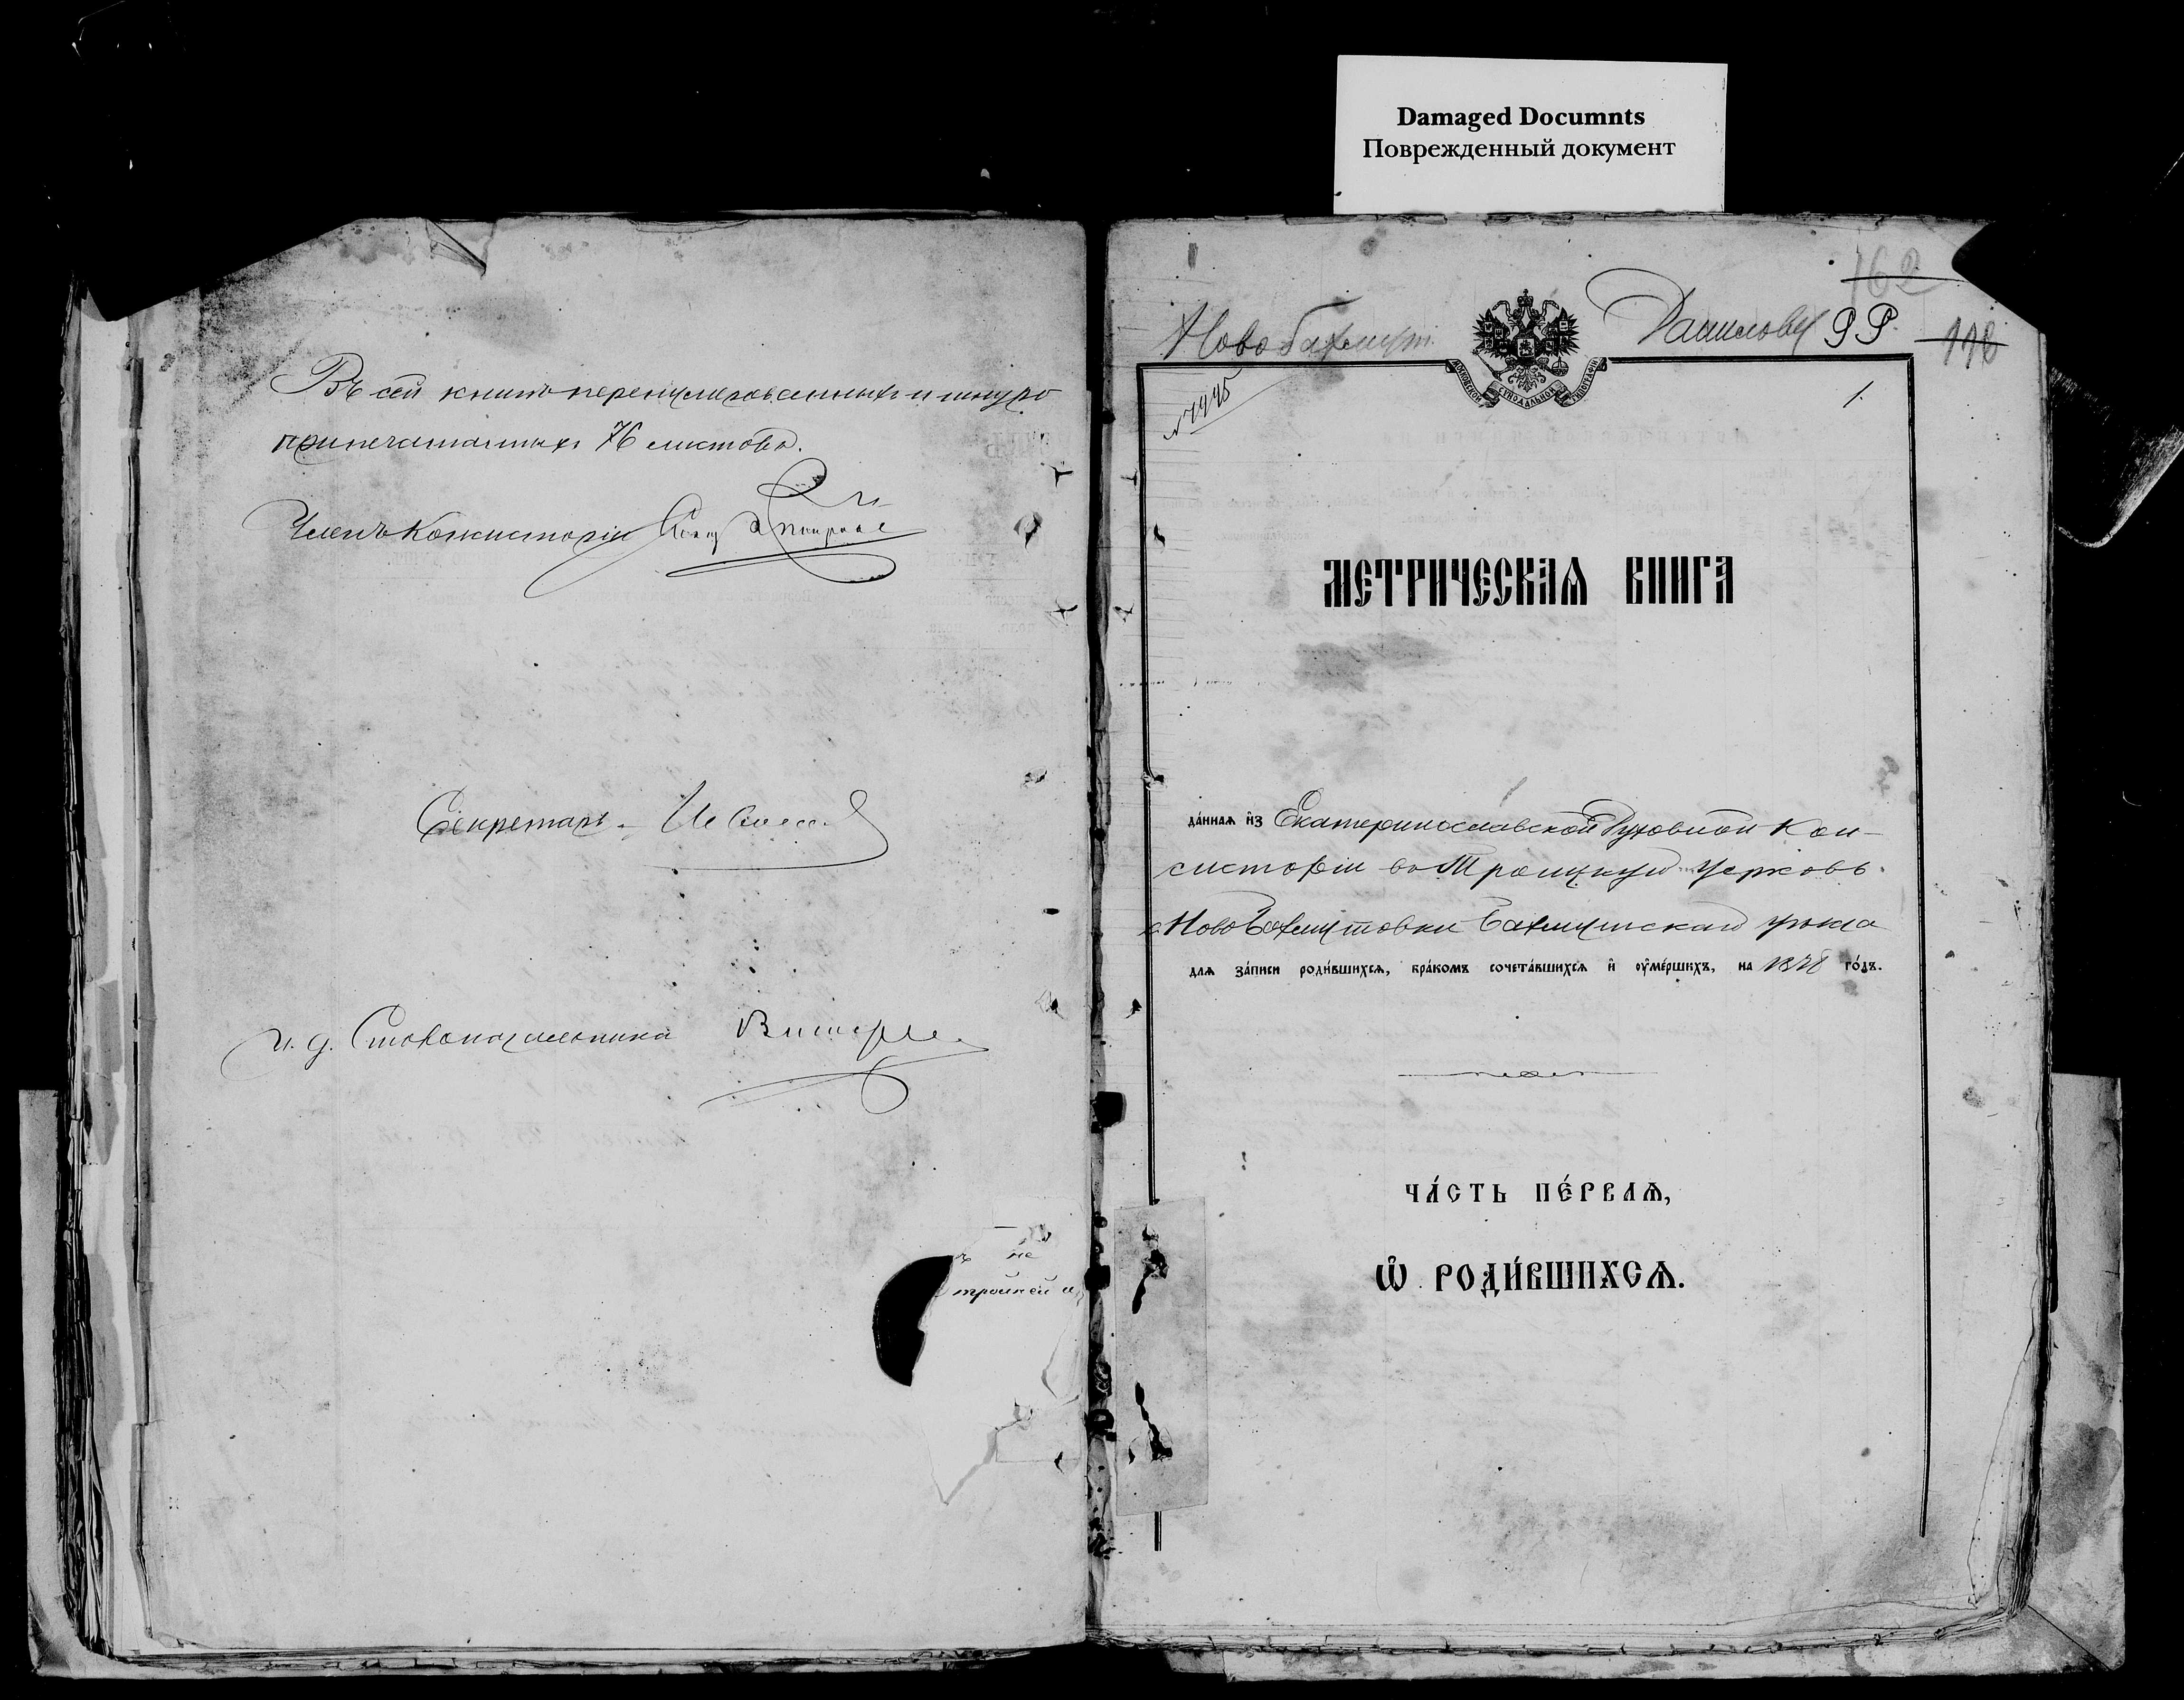 Damaged Documnts
Поврежденный документ
Въ сей книгѣ перенумерованныхъ и шнуро
припечатанныхъ 76 листовъ.
Членъ Консисторіи
Секретарь
И. д. Столоначальника
ъ не
тройней и
162
Новобахмут. Данилов 99. 118
МОСКОВСКОЙ СѴНОДАЛЬНОЙ ТИПОГРАФІИ
1.
МЕТРИЧЕСКАѦ КНИГА
да́ннаѧ и҆з Екатеринославской Духовной Кон-
систоріи въ Троицкую церковь
с. Новобахмутовки Бахмутскаго уѣзда
длѧ за́писи роди́вшихсѧ, бра́комъ сочета́вшихсѧ и҆ ᲂу҆ме́ршихъ, на 1878 го́дъ.
ЧА́СТЬ ПЕ́РВАѦ,
Ѡ҆ РОДИ́ВШИХСѦ.